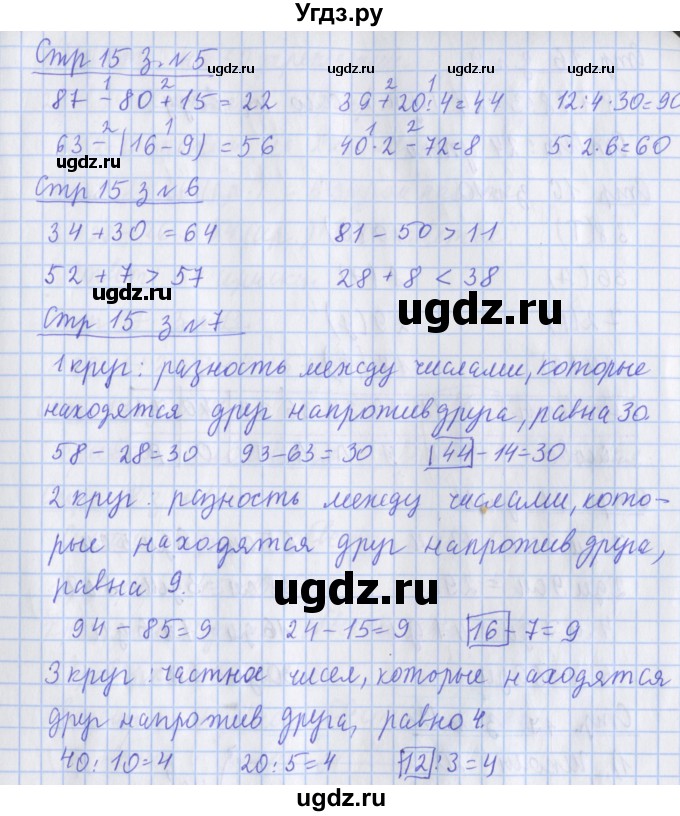 Угдз.ру
Стр 15 з. №5
ugdz.ru ugdz.ru ugdz.ru
1 2 2 1
87 - 80 + 15 = 22 39 + 20 : 4 = 44 12 : 4 · 30 = 90
2 1 1 2
63 - (16 - 9) = 56 40 · 2 - 72 = 8 5 · 2 · 6 = 60
ugdz.ru ugdz.ru ugdz.ru
Стр 15 з № 6
34 + 30 = 64 81 - 50 > 11
52 + 7 > 57 28 + 8 < 38
ugdz.ru ugdz.ru
Стр 15 з № 7
1 круг: разность между числами, которые
находятся друг напротив друга, равна 30.
58 - 28 = 30 93 - 63 = 30 44 - 14 = 30
ugdz.ru ugdz.ru ugdz.ru
2 круг: разность между числами, кото-
рые находятся друг напротив друга,
равна 9.
ugdz.ru ugdz.ru
94 - 85 = 9 24 - 15 = 9 16 - 7 = 9
3 круг: частное чисел, которые находятся
друг напротив друга, равно 4.
40 : 10 = 4 20 : 5 = 4 12 : 3 = 4
ugdz.ru ugdz.ru ugdz.ru
ugdz.ru